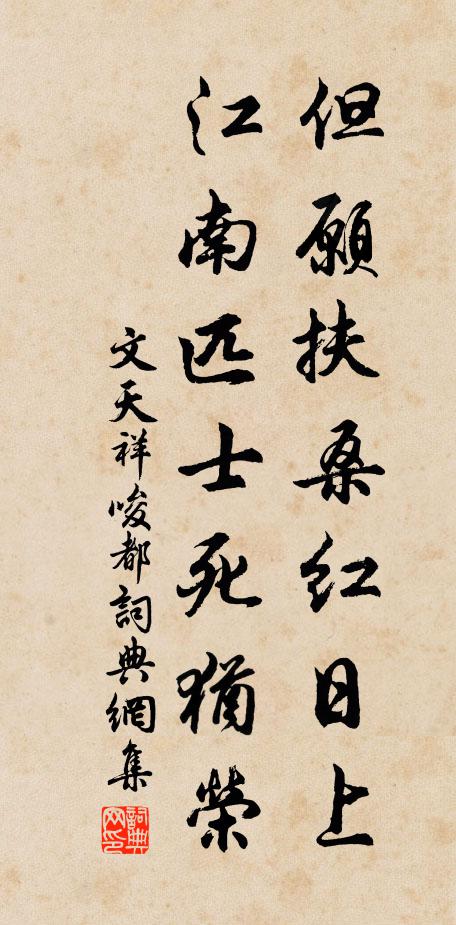 但願扶桑紅日上
江南匹士死猶榮
文天祥唆都詞典網集
詞典网印